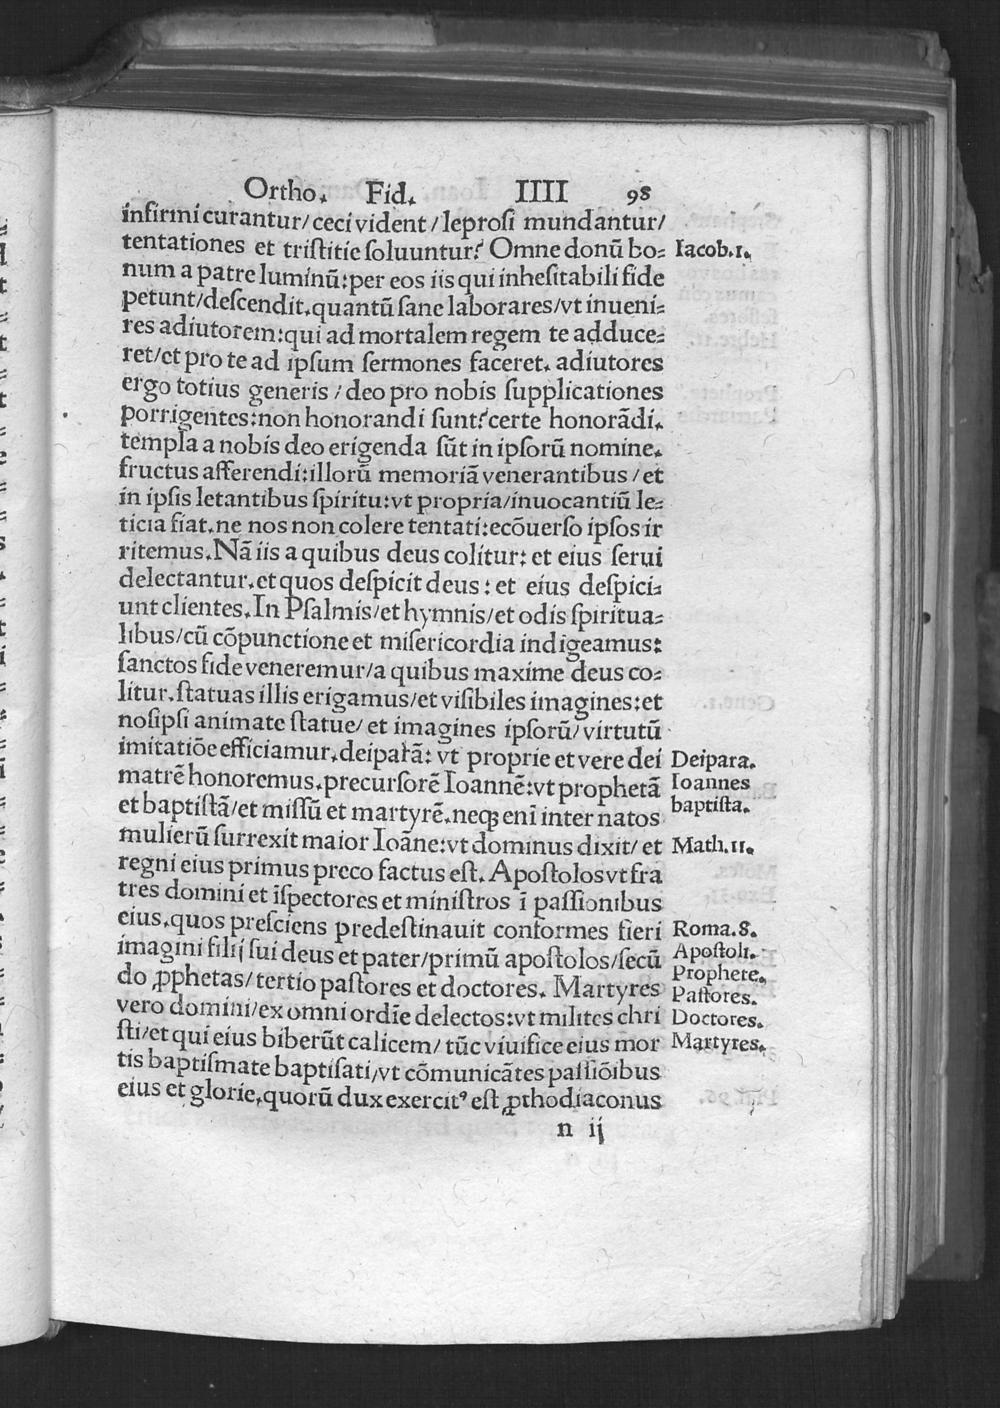 Ortho. Fid. IIII 98
infirmi curantur/ ceci vident/ leprosi mundantur/
tentationes et tristitie soluuntur? Omne donū bo= Iacob.1.
num a patre luminū: per eos iis qui inhesitabili fide
petunt/ descendit. quantū sane laborares/ vt inueni=
res adiutorem: qui ad mortalem regem te adduce=
ret/ et pro te ad ipsum sermones faceret. adiutores
ergo totius generis / deo pro nobis supplicationes
porrigentes: non honorandi sunt? certe honorādi.
templa a nobis deo erigenda sūt in ipsorū nomine.
fructus afferendi: illorū memoriā venerantibus/ et
in ipsis letantibus spiritu: vt propria/ inuocantiū le=
ticia fiat. ne nos non colere tentati: ecōuerso ipsos ir
ritemus. Nā iis a quibus deus colitur: et eius serui
delectantur. et quos despicit deus: et eius despici=
unt clientes. In Psalmis/ et hymnis/ et odis spiritua=
libus/ cū cōpunctione et misericordia indigeamus:
sanctos fide veneremur/ a quibus maxime deus co=
litur. statuas illis erigamus/ et visibiles imagines: et
nosipsi animate statue/ et imagines ipsorū/ virtutū
imitatiōe efficiamur. deiparā: vt proprie et vere dei Deipara.
matrē honoremus. precursorē Ioannē: vt prophetā Ioannes
et baptistā/ et missū et martyrē. neqꝫ enī inter natos baptista.
mulierū surrexit maior Ioāne: vt dominus dixit/ et Math.11.
regni eius primus preco factus est. Apostolos vt fra
tres domini et īspectores et ministros ī passionibus
eius. quos presciens predestinauit conformes fieri Roma.8.
imagini filij sui deus et pater/ primū apostolos/ secū Apostoli.
do ꝓphetas/ tertio pastores et doctores. Martyres Prophete.
Pastores.
vero domini/ ex omni ordīe delectos: vt milites chri Doctores.
sti/ et qui eius biberūt calicem/ tūc viuifice eius mor Martyres.
tis baptismate baptisati/ vt cōmunicātes passiōibus
eius et glorie. quorū dux exercitꝰ est ꝓthodiaconus
n ij